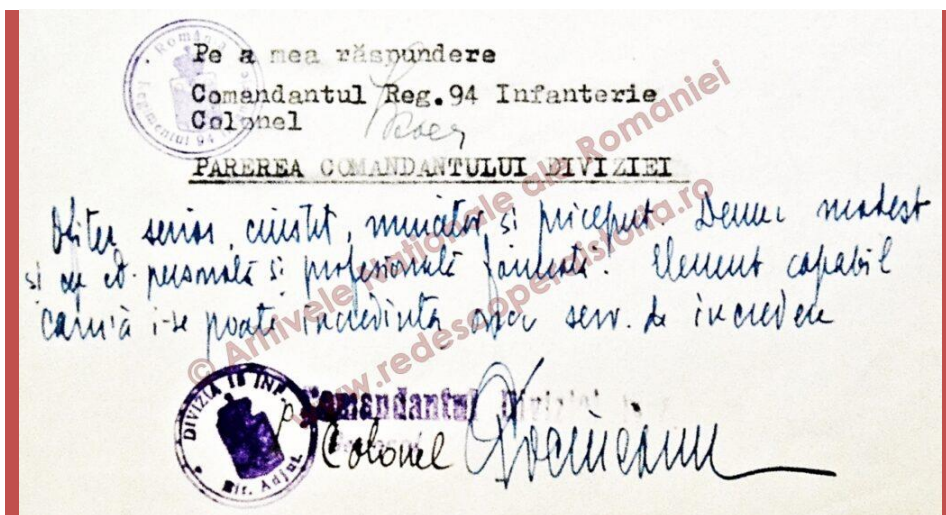 Pe a mea răspundere
Comandantul Reg.94 Infanterie
Colonel
PAREREA COMANDANTULUI DIVIZIEI
Ofițer serios, cinstit, muncitor și priceput. Demn modest
și cu ed. personală și profesională. Element capabil
căruia i-se poate incredința orice serv. de incredere
Comandantul Diviziei
Colonel
DIVIZIA 18 INF.
Bir. Adjut.
Română
Regimentul 94
© Arhivele Naționale ale Romaniei
www.redescoperaistoria.ro